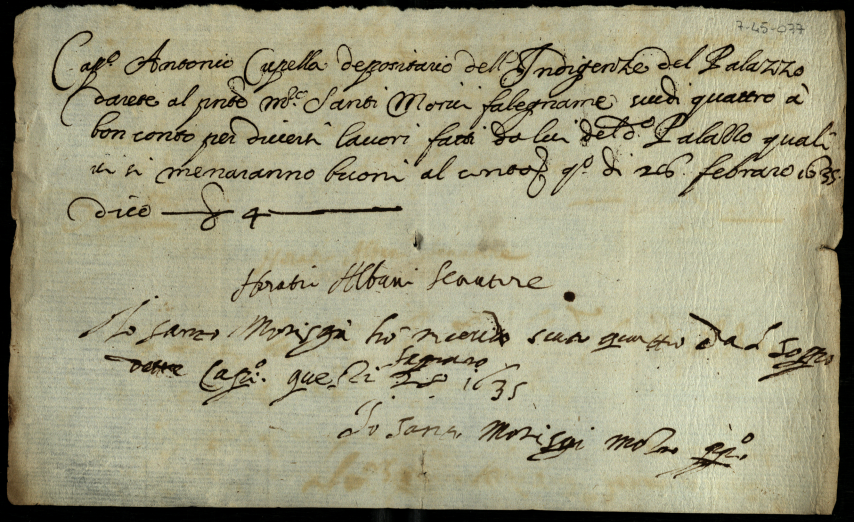 7-45-077
Cap.º Antonio Capella depositario dell'Indigenze del Palazzo
darete al pnte m.º Santi falegname scudi quattro à
bon conto per diversi lavori fatti da lui del d.º Palazzo quali
vi si menaranno buoni al conto q.º dì 26 febraro 1635
dico — ₰ 4 —
Horatio Albani Senatore
Io santo ho receuto scudi quattro dal sopro
dette Cap.º questi febraro 1635
Io santi